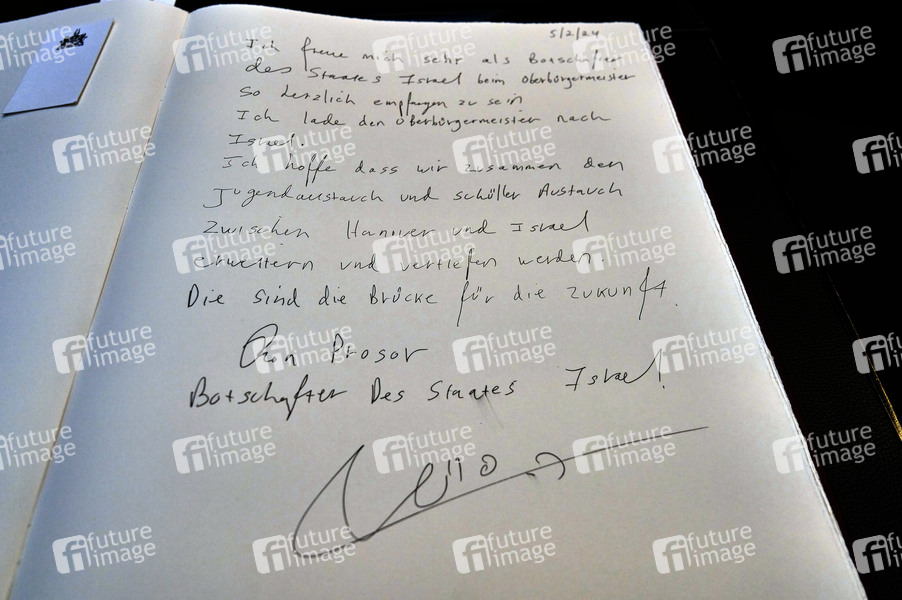 5/2/24
Ich freue mich sehr als Botschafter
des Staates Israel beim Oberbürgermeister
so herzlich empfangen zu sein
Ich lade den Oberbürgermeister nach
Israel.
Ich hoffe dass wir zusammen den
Jugendaustauch und schüller Austauch
zwischen Hannover und Israel
erweitern und vertiefen werden.
Die sind die Brücke für die Zukunft
Ron Prosor
Botschafter Des Staates Israel!
future image